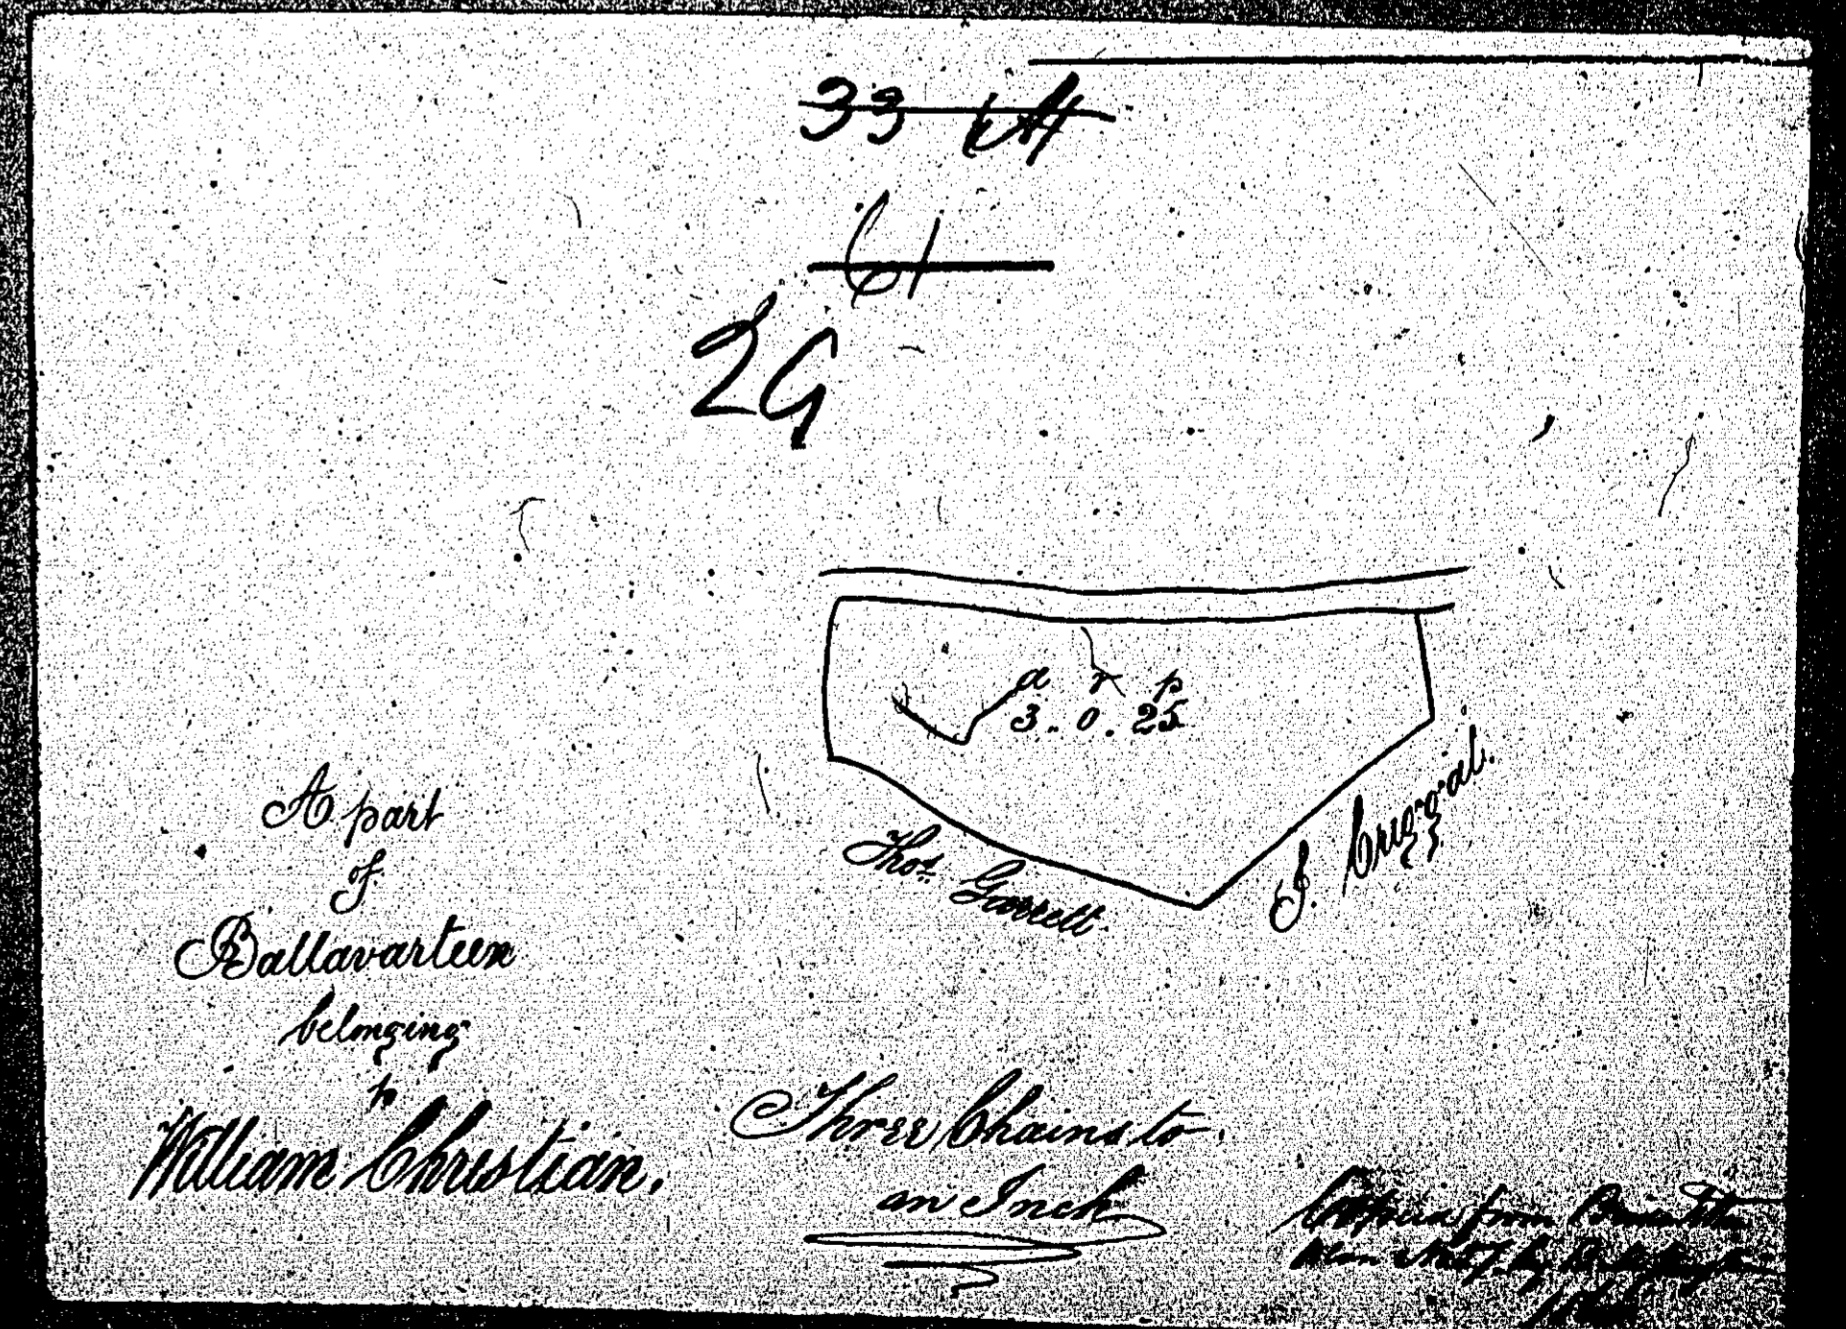 33
61
2G
a r p
3. 0. 25
Thos. Garrett.
J. Criggal.
A part
of
Ballavarteen
belonging
to
William Christian.
Three Chains to
an Inch
Copied from
by